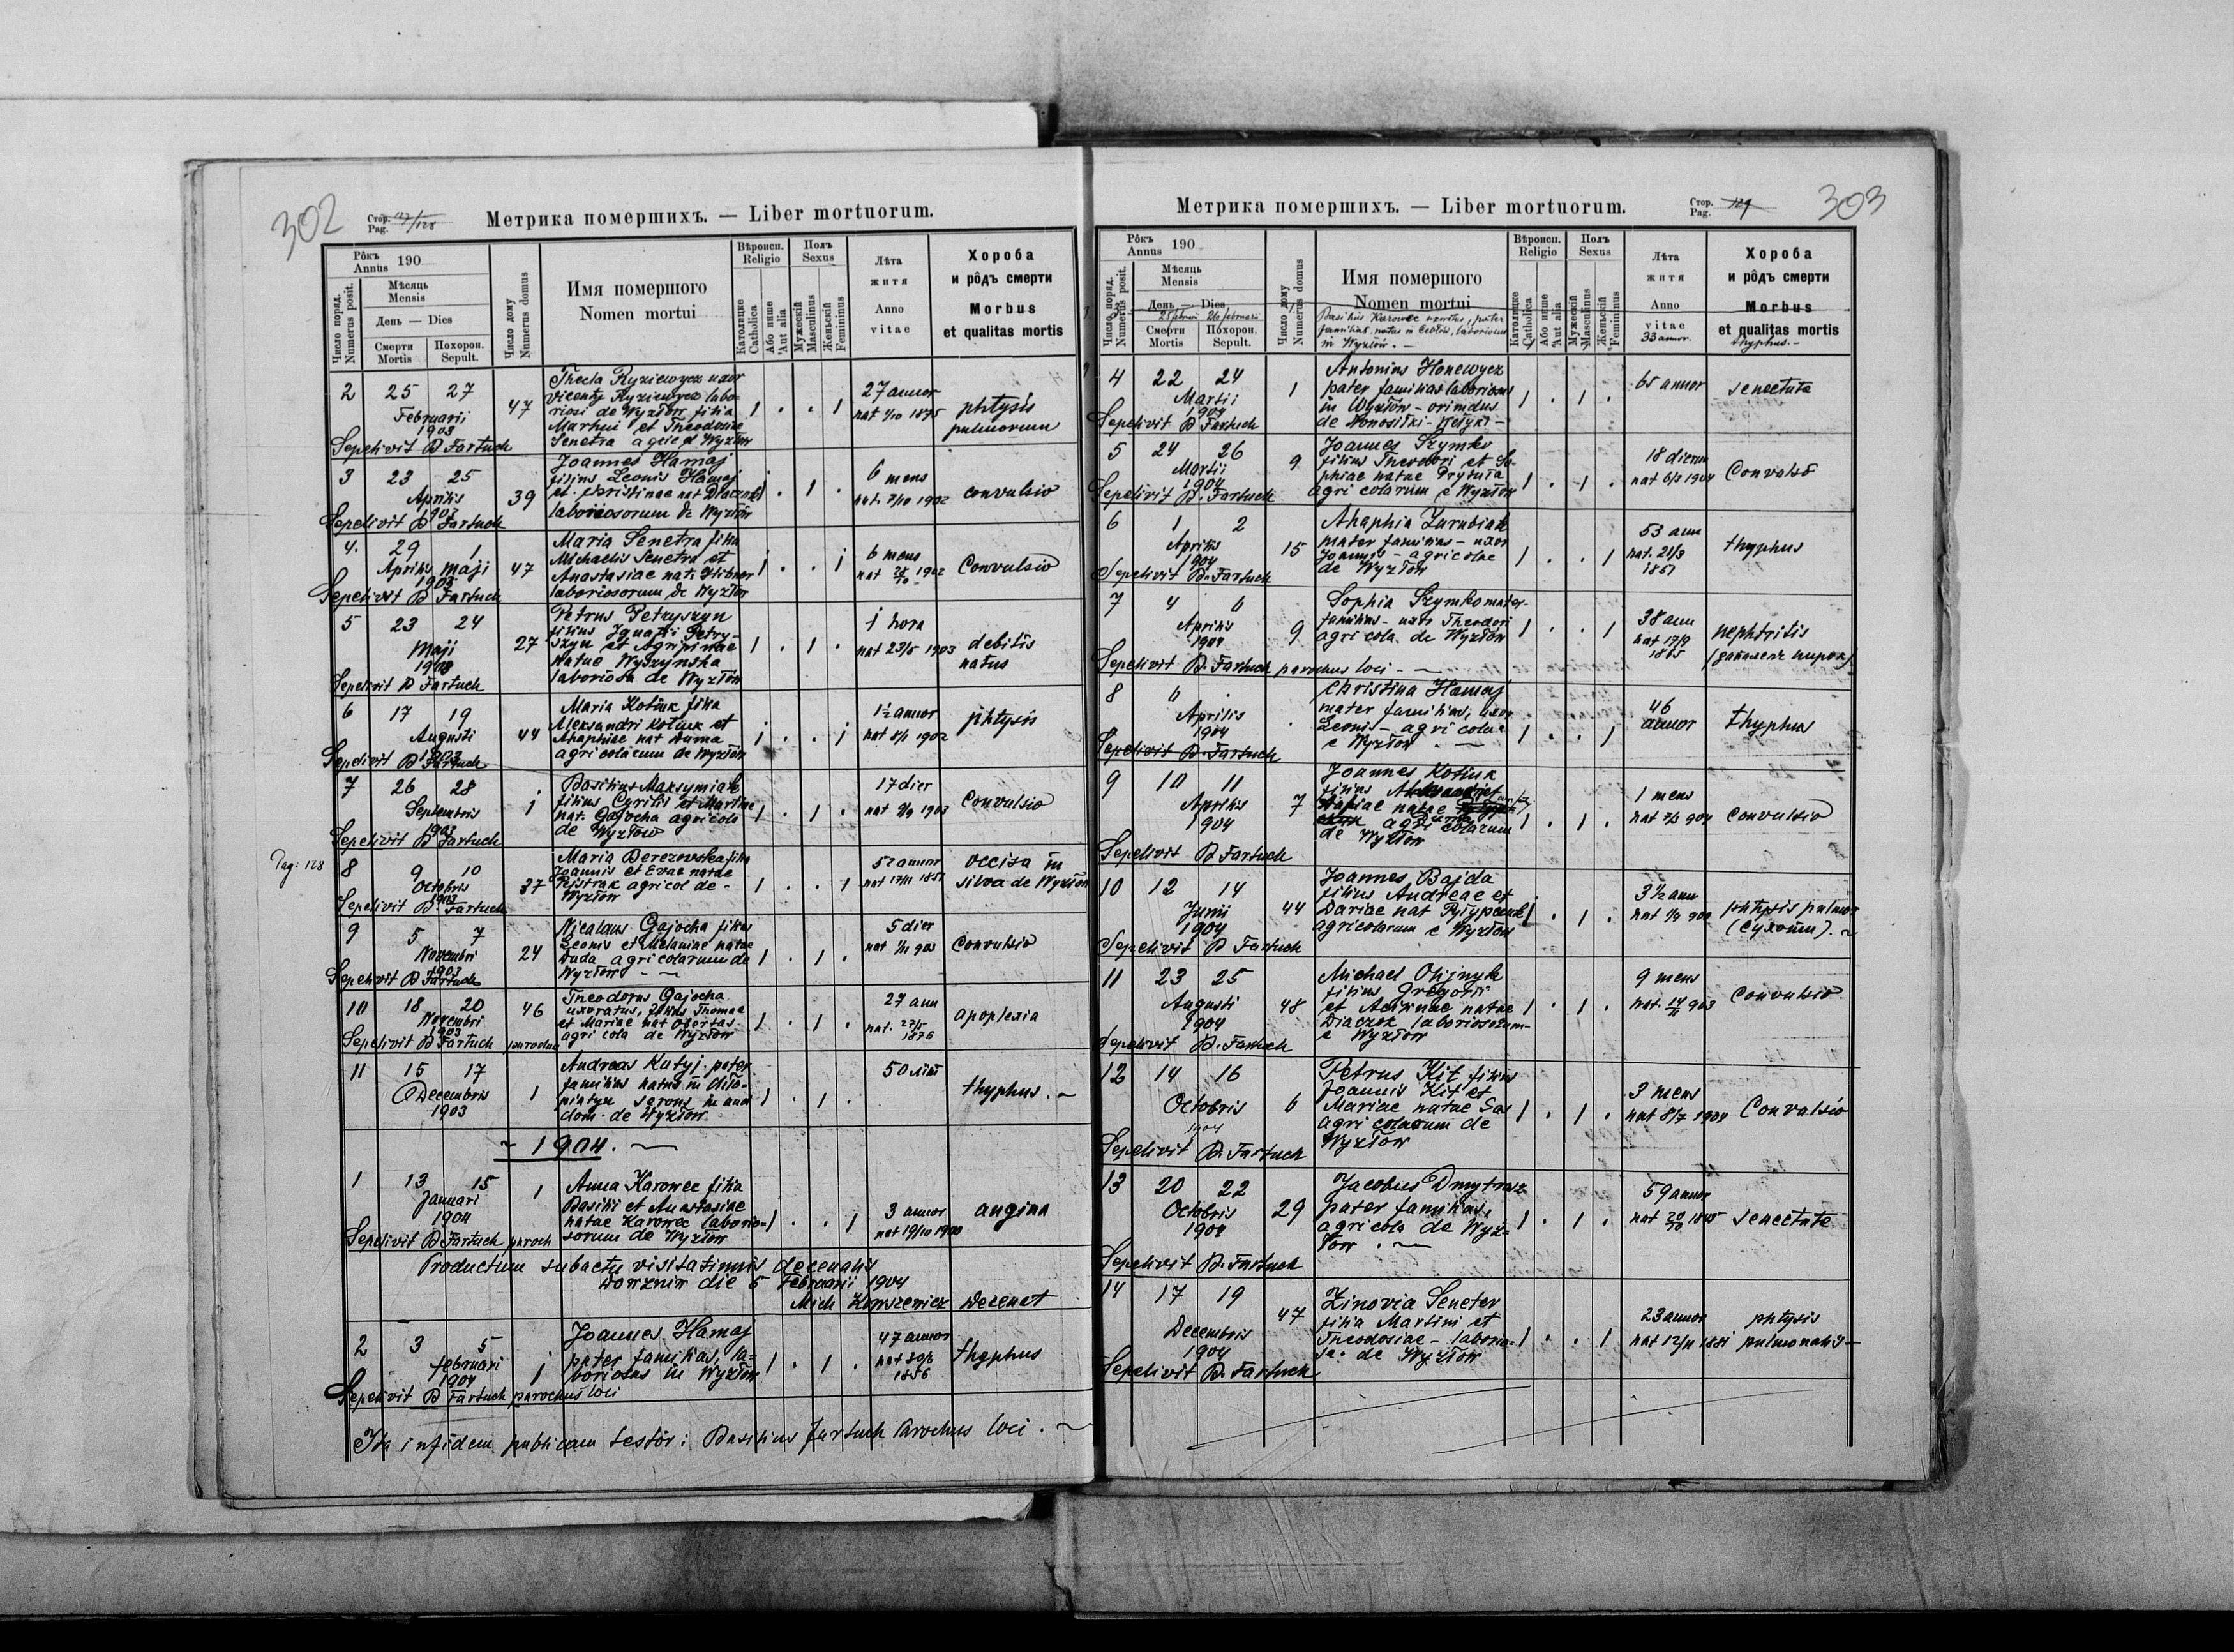 302
Стор. Pag. 127/128
Метрика помершихъ. — Liber mortuorum.
Рôкъ Annus 190
Число поряд. Numerus posit.
Мѣсяць Mensis
День — Dies
Смерти Mortis
Похорон. Sepult.
Число дому Numerus domus
Имя помершого Nomen mortui
Вѣроисп. Religio
Католицке Catholica
Або инше Aut alia
Полъ Sexus
Мужескій Masculinus
Женьскій Femininus
Лѣта житя Anno vitae
Хороба и рôдъ смерти Morbus et qualitas mortis
2 25 27 Februarii 1903 47
Thecla Ryziewycz uxor
Vicenty Ryziewycz labo-
riosi de Wyzłow filia
Martini et Theodosiae
Senetra agricol Wyzłow
1 . . 1
27 annor
nat 1/10 1875
phtysis
pulmorum
Sepelivit B Fartuch
3 23 25 Aprilis 1903 39
Joannes Hamaj
filius Leonis Hamaj
et Christinae nat Diaczok
laboriosorum de Wyzłow
1 . 1 .
6 mens
nat. 7/10 1902
convulsio
Sepelivit B Fartuch
4. 29 1 Aprilis Maji 1903 47
Maria Senetra filia
Michaelis Senetra et
Anastasiae nat. Hibner
laboriosorum de Wyzłow
1 . . 1
6 mens
nat 28/10 1902
Convulsio
Sepelivit B Fartuch
5 23 24 Maji 1903 27
Petrus Petryszyn
filius Ignatii Petry-
szyn et Agripinae
natae Wyszynska
laboriosa de Wyzłow
1 . 1 .
1 hora
nat 23/5 1903
debilis
natus
Sepelivit B Fartuch
6 17 19 Augusti 1903 44
Maria Kotiuk filia
Aleksandri Kotiuk et
Ahaphiae nat Duma
agricolarum de Wyzłow
1 . . 1
1½ annor
nat 8/1 1902
phtysis
Sepelivit B Fartuch
7 26 28 Septembris 1903 1
Basilius Maksymiak
filius Cyrilli et Martae
nat. Gajocha agricola
de Wyzłow
1 . 1 .
17 dier
nat 9/9 1903
Convulsio
Sepelivit B Fartuch
Pag: 128
8 9 10 Octobris 1903 37
Maria Berezovska filia
Joannis et Evae natae
Pejstrak agricol de -
Wyzłow
1 . . 1
52 annor
nat 17/11 1851
occisa in
silva de Wyzłow
Sepelivit B. Fartuch
9 5 7 Novembri 1903 24
Nicalaus Gajocha filius
Leonis et Melaniae natae
Duda agricolarum de
Wyzłow - ~
1 . 1 .
5 dier
nat 1/11 903
Convulsio
Sepelivit B Fartuch
10 18 20 Novembri 1903 46
Theodorus Gajocha
uxoratus, filius Thomae
et Mariae nat Obertas
agricola de Wyzłow
1 . 1 .
27 ann
nat. 27/5 1876
apoplexia
Sepelivit B Fartuch parochus
11 15 17 Decembris 1903 1
Andreas Kutyj. pater
familias natus in Biło-
piatyn
dom. de Wyzłow
1 . 1 .
50 літ
thyphus. ~
~ 1904. ~
1 13 15 Januari 1904 1
Anna Karowec filia
Basilii et Anastasiae
natae Karowec laborio-
sorum de Wyzłow
1 . . 1
3 annor
nat 19/10 1900
angina
Sepelivit B. Fartuch paroch
Productum subactu visitationis decenalis
die 5 Februarii 1904
Mich Decenat
2 3 5 februari 1904 1
Joannes Hamaj
pater familias, la-
boriosus in Wyzłow
1 . 1 .
47 annor
nat 30/6 1856
thyphus
Sepelivit B Fartuch parochus loci
Ita in fidem publicam testor: Basilius Fartuch Parochus loci. ~
Метрика помершихъ. — Liber mortuorum.
Стор. Pag. 129
303
Рôкъ Annus 190
Число поряд. Numerus posit.
Мѣсяць Mensis
День — Dies
Смерти Mortis
Похорон. Sepult.
Число дому Numerus domus
Имя помершого Nomen mortui
Вѣроисп. Religio
Католицке Catholica
Або инше Aut alia
Полъ Sexus
Мужескій Masculinus
Женьскій Femininus
Лѣта житя Anno vitae
Хороба и рôдъ смерти Morbus et qualitas mortis
3. 25 februari 26 februarii
Basilius Karowec uxoratus, pater
familias natus in Cebłów, laboriosus
in Wyzłów. -
33 annor.
thyphus. -
4 22 24 Martii 1904 1
Antonius Honewycz
pater familias laboriosus
in Wyzłow - oriundus
de Nonosilki-
1 . 1 .
65 annor
senectute
Sepelivit B Fartuch
5 24 26 Martii 1904 9
Joannes Szymko
filius Theodori et So-
phiae natae Prytuła
agricolarum e Wyzłow
1 . 1 .
18 dierum
nat 6/3 1904
Convulso
Sepelivit B. Fartuch
6 1 2 Aprilis 1904 15
Ahaphia Zarubiak
mater familias - uxor
Joannis - agricolae
de Wyzłow
1 . . 1
53 ann
nat. 21/3
1851
thyphus
Sepelivit B. Fartuch
7 4 6 Aprilis 1904 9
Sophia Szymko mater-
familias - uxor Theodori
agricola de Wyzłow
1 . . 1
38 ann
nat 17/9
1865
nephtritis
Sepelivit B. Fartuch parochus loci - ~
8 6 . Aprilis 1904 .
Christina Hamaj
mater familias, uxor
Leonis - agricolae
e Wyzłow . ~
1 . . 1
46
annor
thyphus
Sepelivit B. Fartuch
9 10 11 Aprilis 1904 7
Joannes Kotiuk
filius Alexandri et
natae
agricolarum
de Wyzłow
1 . 1 .
1 mens
nat 7/3 904
convulsio
Sepelivit B Fartuch
10 12 14 Junii 1904 44
Joannes Bajda
filius Andreae et
Dariae nat Pyłypczuk
agricolarum e Wyzłow
1 . 1 .
3½ ann
phtysis pulmor
(Сухоти). ~
Sepelivit B Fartuch
11 23 25 Augusti 1904 48
Michael Olijnyk
filius Gregorii
et Achinae natae
Diaczok laboriosorum-
e Wyzłow
1 . 1 .
9 mens
nat. 14/11 903
Convulsio
Sepelivit B. Fartuch
12 14 16 Octobris 1904 6
Petrus Kit filius
Joannis Kit et
Mariae natae Sas
agricolarum de
Wyzłow
1 . 1 .
3 mens
nat 8/7 1904
Convalsio
Sepelivit B. Fartuch
13 20 22 Octobris 1904 29
Jacobus Dmytrasz
pater familias,
agricola de Wyz-
łow . ~
1 . 1 .
59 annor
nat 20/10 1845
senectute
Sepelivit B. Fartuch
14 17 19 Decembris 1904 47
Zinovia Seneter
filia Martini et
Theodosiae - laborio-
sa: de Wyzłow
1 . . 1
23 annor
nat 12/11 1881
phtysis
pulmonalis -
Sepelivit B. Fartuch